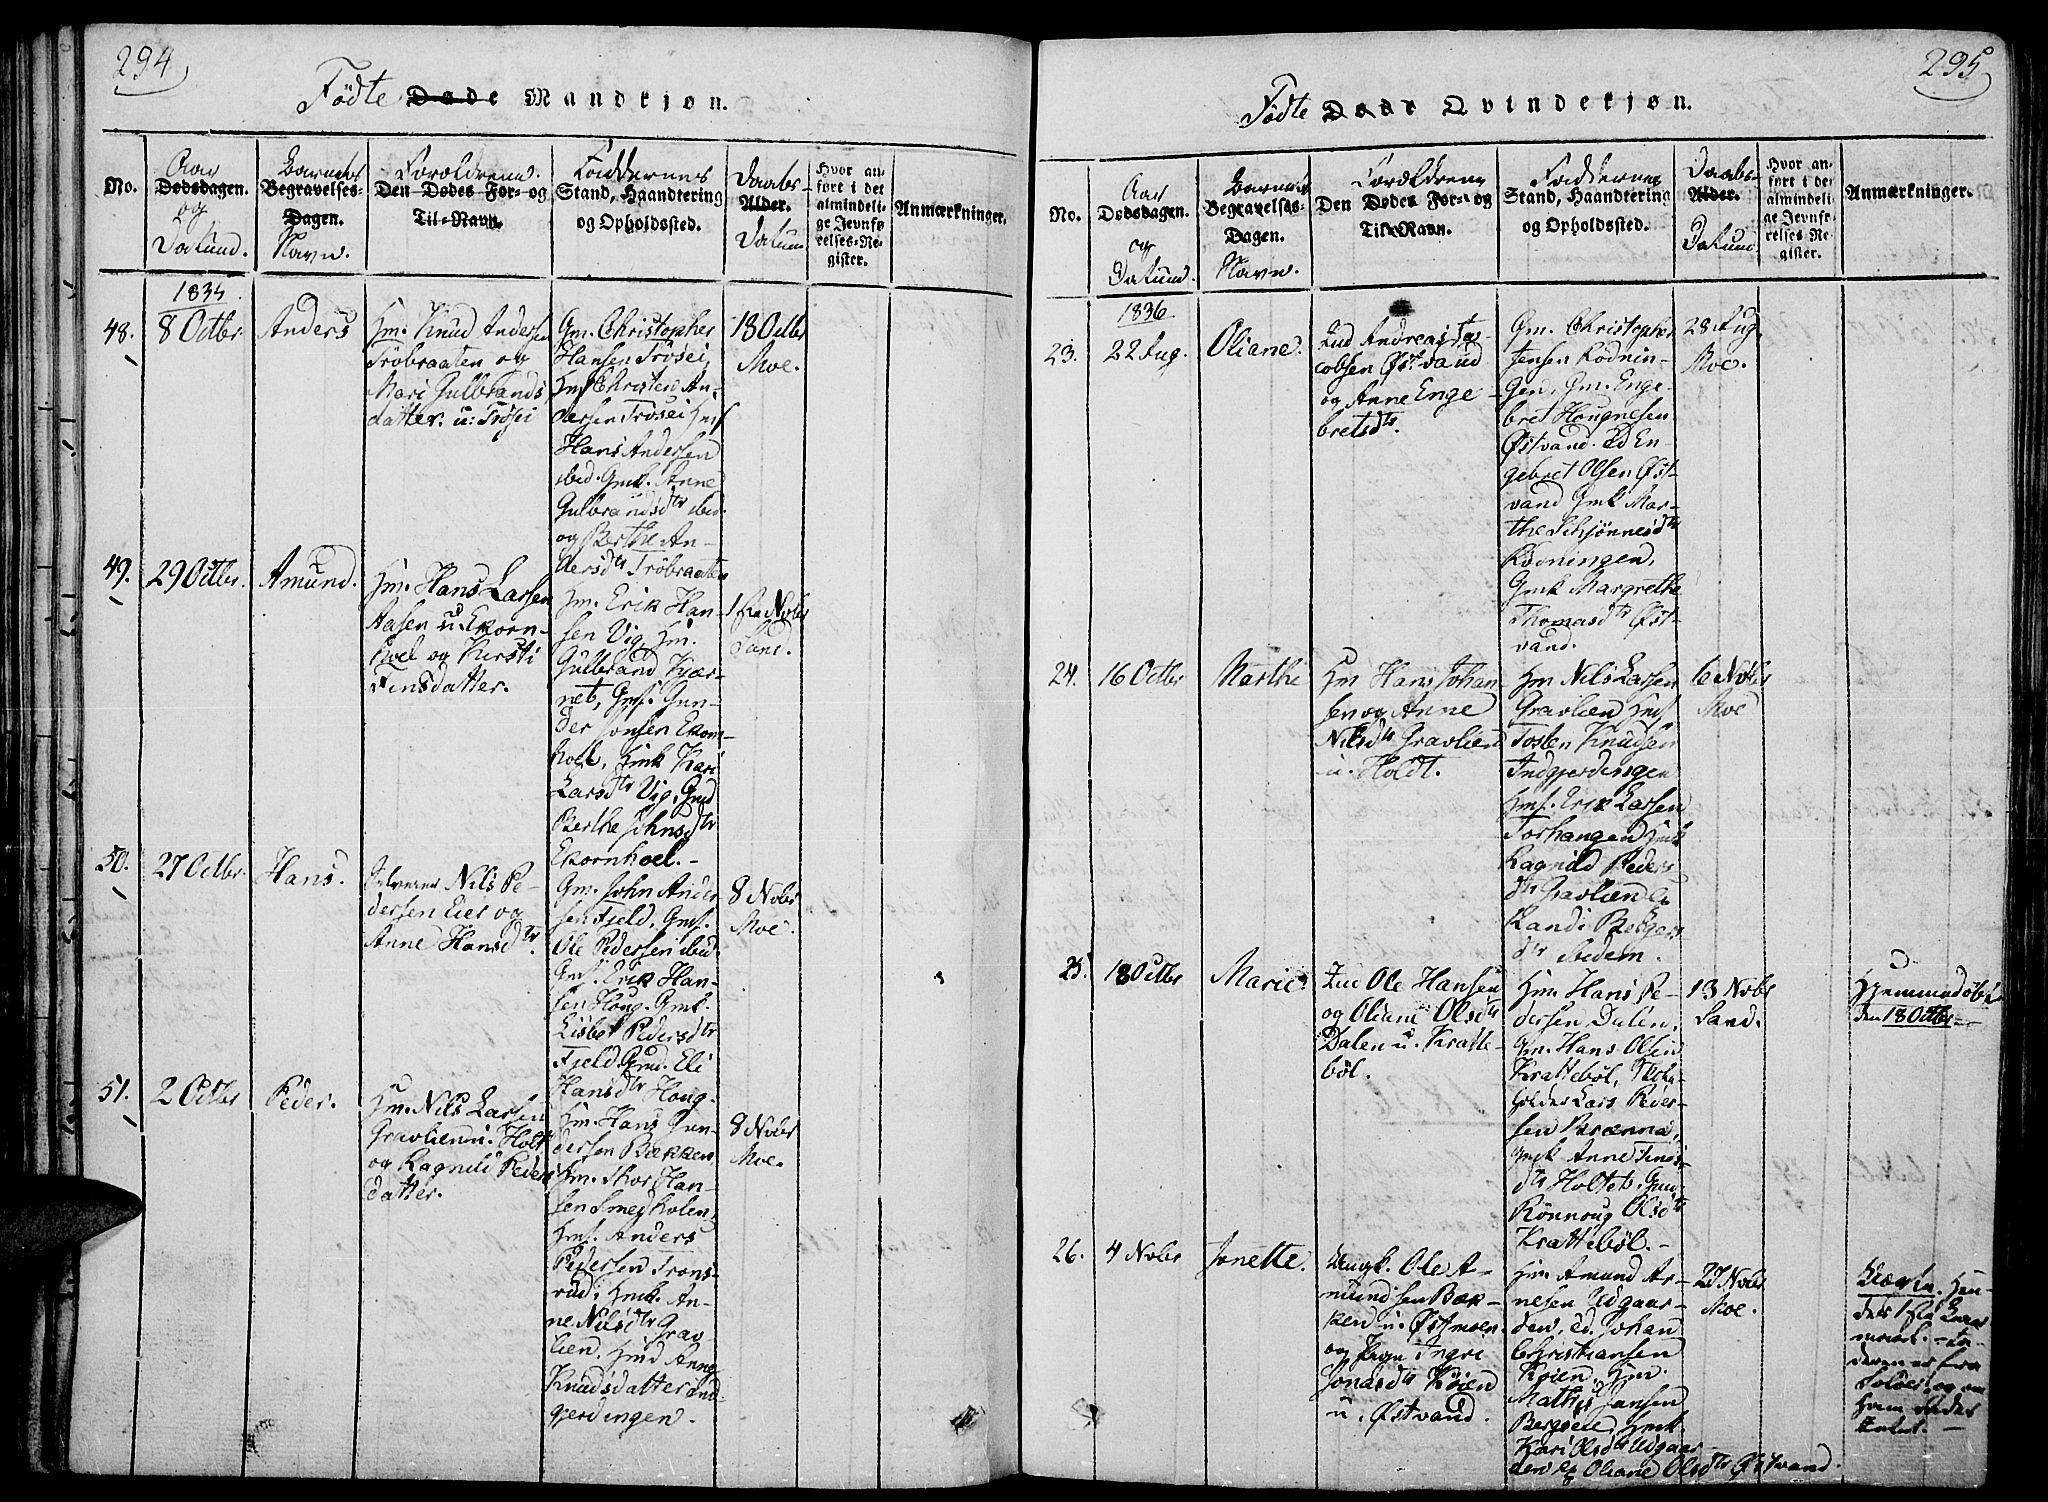 294
Fødte Døde Mandkjøn.
No.
Aar
Dødsdagen.
og
Datum.
Barnets
Begravelses-
Dagen.
Navn.
Forældrene
Den Dødes For- og
Til-Navn.
Faddernes
Stand, Haandtering
og Opholdssted.
Daabs-
Alder.
Datum
Hvor an-
ført i det
almindeli-
ge Jevnfø-
relses-Re-
gister.
Anmærkninger.
48.
8 Octbr
Anders
Hm. Knud Andersen
Tröbraaten og
Mari Gulbrands
datter. u: Trösei
Gm. Christopher
Hansen Trösei,
Christen An-
dersen Trösei
Hans Andersen
ibid. Gmk. Anne
Gulbrandsdtr ibid.
og Berthe An-
dersdtr Tröbraaten
18 Octbr
Moe.
49.
29 Octbr.
Amund.
Hm. Hans Larsen
Aasen u. Ekorn-
hoel og Kirsti
Finsdatter.
Hm. Erik Han-
sen Vig, Hm.
Gulbrand Kjær-
net, Gmf. Gun-
der Jonsen Ekorn-
hoel, Hmk Kari
Larsdtr Vig,
Berthe Johnsdtr
Ekornhoel.-
1ste Nobr
Sand.
50.
27 Octbr.
Hans.
Selveier Nils Pe-
dersen Eier og
Anne Hansdtr.
Gm. John Ander
sen Fjeld, Gmf.
Ole Pedersen ibid.
Gmf. Erik Han-
sen Houg. Gmk.
Lisbet Pedersdtr
Fjeld. Eli
Hansdtr Houg.
8 Nobr
Moe.
51.
2 Octbr
Peder.
Hm. Nils Larsen
Gravlien u. Holt
og Ragnild Peders
datter.
Hm. Hans Gun-
dersen Bækken,
Hm. Thor Han-
sen Smedholen,
Hmf. Anders
Pedersen Trons-
rud, Hmk. An-
ne Nilsdtr Grav
lien, Anne
Knudsdatter Ind-
gjerdingen.
8 Nobr
Moe.
295
Fødte Døde Qvindekjøn.
No.
Aar
Dødsdagen.
og
Datum.
Barnets
Begravelses-
Dagen.
Navn.
Forældrene
Den Dødes For- og
Til-Navn.
Faddernes
Stand, Haandtering
og Opholdssted.
Daabs-
Alder.
Datum
Hvor an-
ført i det
almindeli-
ge Jevnfø-
relses-Re-
gister.
Anmærkninger.
1836
23.
22 Aug.
Oliane.
Ind Andreas Ja-
cobsen Østvand
og Anne Enge-
bretsdtr.
Gm. Christopher
Jensen Rödnin-
gen, Gm. Enge-
bret Hougnesen
Østvand. Ed En-
gebret Olsen Øst-
vand Gmk Mar-
the Schjönnesdtr
Rödningen,
Gmk Margrethe
Thomasdtr Øst-
vand.
28 Aug.
Moe.
24.
16 Octbr
Marthe
Hm Hans Johan-
sen og Anne
Nilsdtr Gravlien
u. Holdt.
Hm Nils Larsen
Gravlien Hmf
Tosten Knudsen
Indgjerdingen
Hmf. Erik Larsen
Torhangen Hmk
Ragnild Peders-
dtr Gravlien og
Randi Bergers
dtr Sedem.
6 Nobr
Moe
25.
18 Octbr
Marie.
Ole Hansen
og Oliane Olsdtr
Dalen u. Kratte-
böl.
Hm. Hans Pe-
dersen Dalen,
Gm. Hans Olsen
Krattebøl,
Lars Peder-
sen Brænna,
Gmk Anne Fins-
dtr Holtet,
Rönnoug Olsdtr
Krattebøl.-
13 Nobr
Sand.
Hjemmedøbt
den 18 Octbr-
26.
4 Nobr
Jonette.
Ungk. Ole A-
mundsen Bæk-
ken u. Østmoen
og Pige Ingri
Jonasdtr Koien
u. Østvand.
Hm. Amund Ar-
nesen Udgaar-
den, Ed. Johan
Christiansen
Koien, Hm.
Mathis Jansen
Bergseie Hmk
Kari Olsdtr Udgaar-
den og Oliane Olsdtr Østvand.
27 Nobr
Moe.
Uægte. Hen-
des 1ste Leier-
maal.